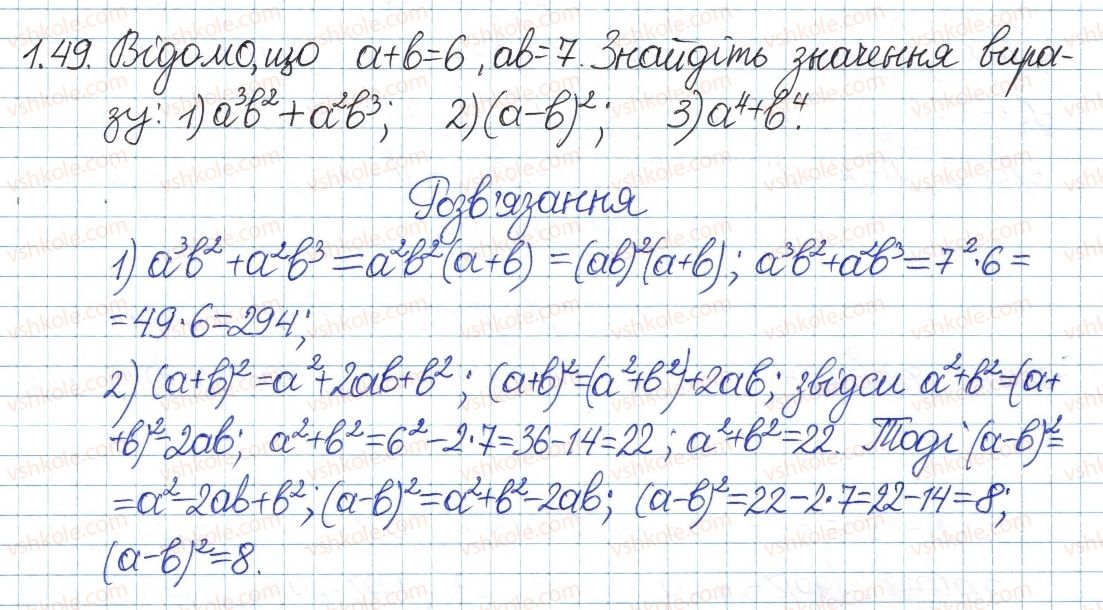 1.49. Відомо, що a+b=6, ab=7. Знайдіть значення вира-
зу: 1) a³b²+a²b³; 2) (a-b)²; 3) a⁴+b⁴.
Розв'язання
1) a³b²+a²b³=a²b²(a+b)=(ab)²(a+b); a³b²+a²b³=7²·6=
=49·6=294;
2) (a+b)²=a²+2ab+b²; (a+b)²=(a²+b²)+2ab; звідси a²+b²=(a+
+b)²-2ab; a²+b²=6²-2·7=36-14=22; a²+b²=22. Тоді (a-b)²=
=a²-2ab+b²; (a-b)²=a²+b²-2ab; (a-b)²=22-2·7=22-14=8;
(a-b)²=8.